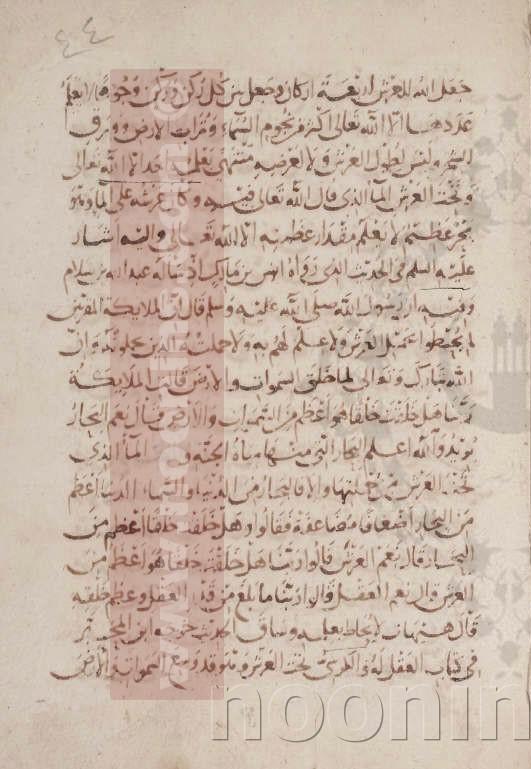 ٤٤
جعل الله للعرش اربعة اركان وجعل بين كل ركن وركن وجوها لا يعلم
عددها الا الله تعالى اكثر من نجوم السماء وتراب الارض وورق
الشجر وليس لطول العرش ولا لعرضه منتهى يعلمه احد الا الله تعالى
وتحت العرش الماء الذي قال الله تعالى فيه وكان عرشه على الماء وهو
بحر عظيم لا يعلم مقدار عظمته الا الله تعالى واليه اشار
عليه السلم في الحديث الذي رواه انس بن مالك ان سأله عبد الله بن سلام
وفيه ان رسول الله صلى الله عليه وسلم قال ان الملائكة المقربين
لم يحيطوا بمثل العرش ولا علم لهم به ولا حملته الذين يحملونه وان
الله تبارك وتعالى لما خلق السموات والارض قالت الملائكة
ربنا هل خلقت خلقا هو اعظم من السموات والارض قال نعم البحار
يريد والله اعلم البحار التي منها مياه الجنة و الماء الذي
تحت العرش والا فالبحار من الدنيا والسماء الدنيا اعظم
من البحار اضعافا مضاعفة فقالوا هل خلقت خلقا اعظم من
البحار قال نعم العرش قالوا ربنا هل خلقت خلقا هو اعظم من
العرش قال نعم العقل قالوا ربنا ما بلغ من قدر العقل وعظم خلقه
قال هيهات لا يحاط بعلمه وساق الحديث خرجه ابن المحبر
في كتاب العقل له والكرسي تحت العرش وهو قد وسع السموات والارض
noonin